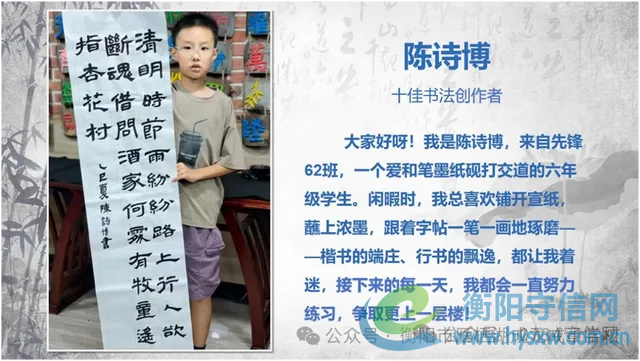 清明時節雨紛紛路上行人欲
斷魂借問酒家何處有牧童遥
指杏花村
乙巳夏陳詩博書
陈诗博
十佳书法创作者
大家好呀！我是陈诗博，来自先锋
62班，一个爱和笔墨纸砚打交道的六年
级学生。闲暇时，我总喜欢铺开宣纸，
蘸上浓墨，跟着字帖一笔一画地琢磨—
—楷书的端庄、行书的飘逸，都让我着
迷，接下来的每一天，我都会一直努力
练习，争取更上一层楼！
衡阳守信网
www.hysxw.com
公众号 · 衡阳市